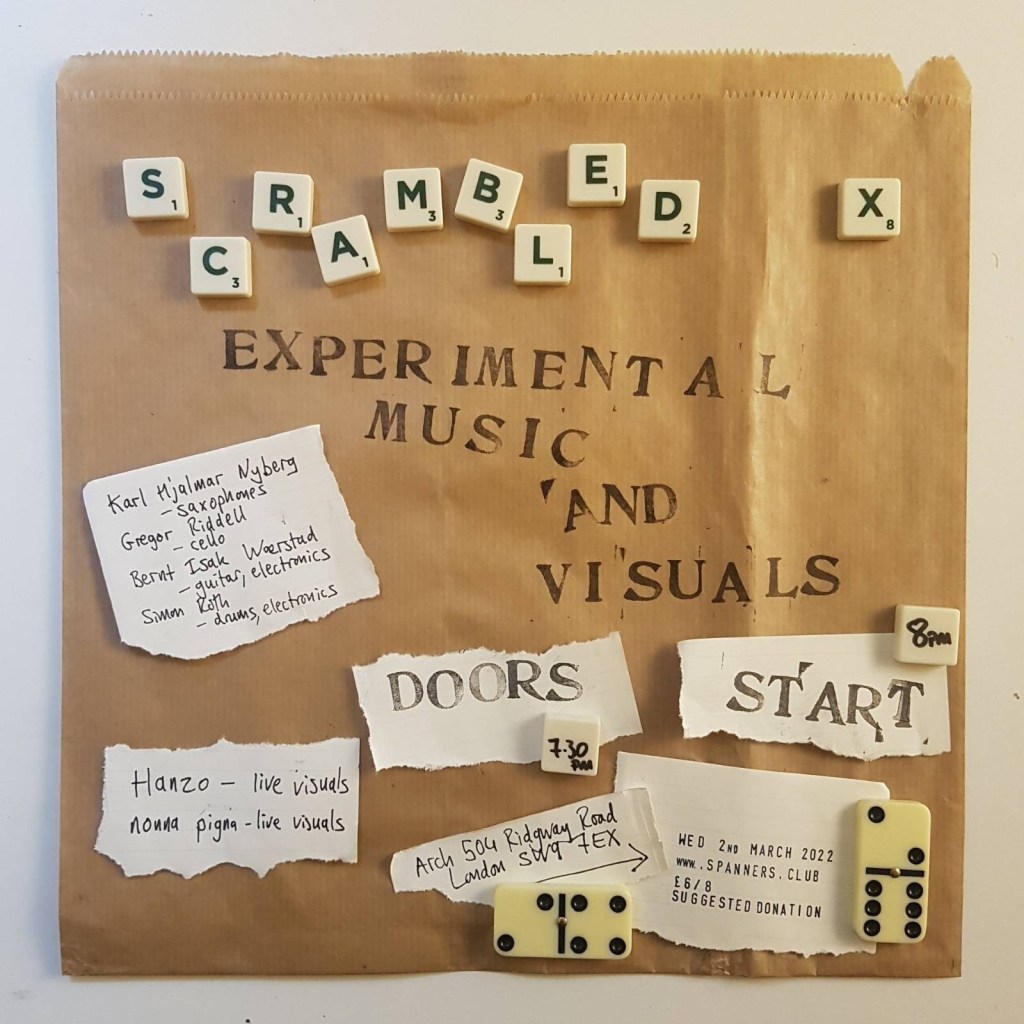 SCRAMBLED X
EXPERIMENTAL
MUSIC
AND
VISUALS
Karl Hjalmar Nyberg
- saxophones
Gregor Riddell
- cello
Bernt Isak Wærstad
- guitar, electronics
Simon Roth
- drums, electronics
DOORS
7.30 pm
START
8 pm
Hanzo - live visuals
nonna pigna - live visuals
Arch 504 Ridgway Road
London SW9 7EX
WED 2ND MARCH 2022
www.SPANNERS.CLUB
£6/8
SUGGESTED DONATION